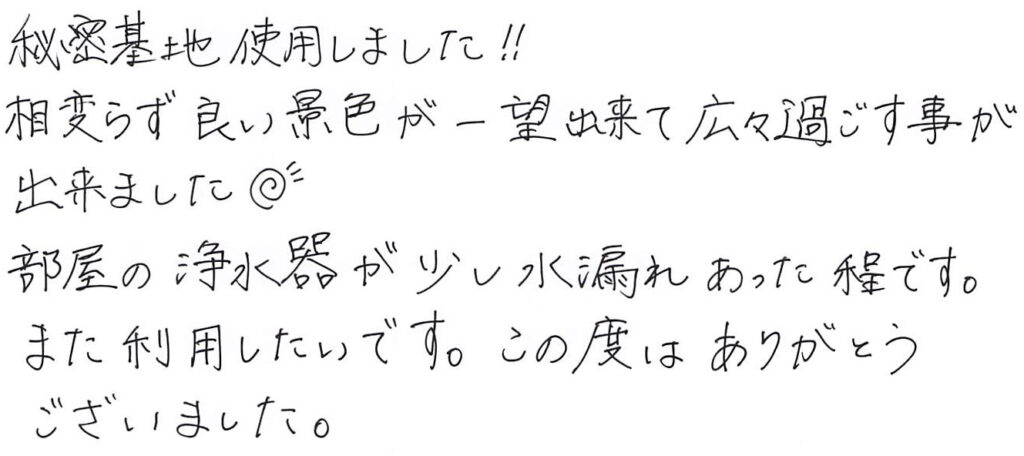 秘密基地使用しました!!
相変らず良い景色が一望出来て広々過ごす事が
出来ました
部屋の浄水器が少し水漏れあった程です。
また利用したいです。この度はありがとう
ございました。